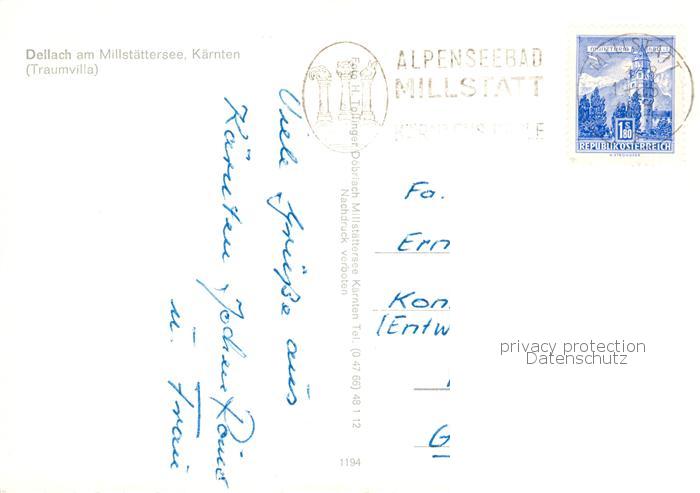 Dellach am Millstättersee, Kärnten
(Traumvilla)
ALPENSEEBAD
MILLSTATT
1S80
REPUBLIK ÖSTERREICH
Viele Grüße aus
Kärnten Jochen
u. Frau
Foto H. Tollinger, Döbriach Millstättersee Kärnten Tel. (0 47 66) 48 1 12
Nachdruck verboten
1194
Fa.
Ern
Kon
(Entw
G
privacy protection
Datenschutz